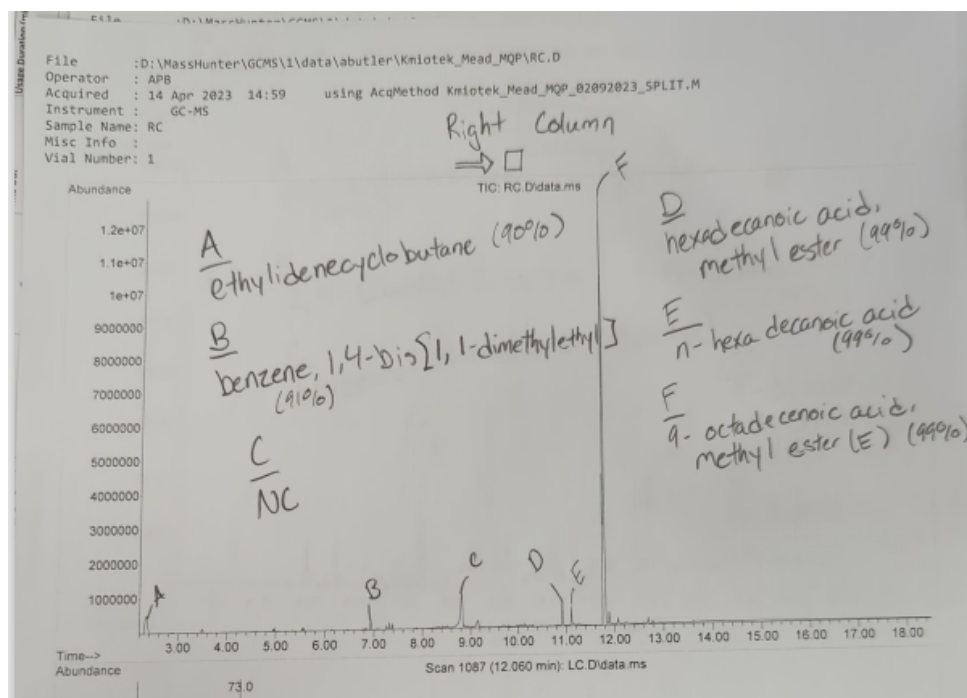 File :D:\MassHunter\GCMS\1\data\abutler\Kmiotek_Mead_MQP\RC.D
Operator : APB
Acquired : 14 Apr 2023 14:59 using AcqMethod Kmiotek_Mead_MQP_02092023_SPLIT.M
Instrument : GC-MS
Sample Name: RC
Misc Info :
Vial Number: 1
Right Column
Abundance
TIC: RC.D\data.ms
F
1.2e+07
1.1e+07
1e+07
9000000
8000000
7000000
6000000
5000000
4000000
3000000
2000000
1000000
A
ethylidenecyclobutane (90%)
B
benzene, 1,4-bis[1,1-dimethylethyl]
(91%)
C
NC
D
hexadecanoic acid,
methyl ester (99%)
E
n-hexadecanoic acid
(99%)
F
9-octadecenoic acid,
methyl ester (E) (99%)
A B C D E
3.00 4.00 5.00 6.00 7.00 8.00 9.00 10.00 11.00 12.00 13.00 14.00 15.00 16.00 17.00 18.00
Time-->
Abundance
Scan 1087 (12.060 min): LC.D\data.ms
73.0